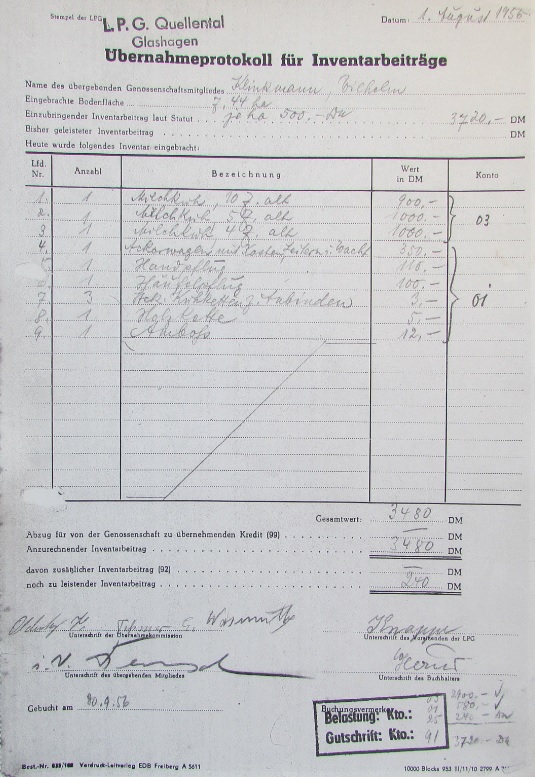 Stempel der LPG L.P.G. Quellental
Glashagen
Datum: 1. August 1956
Übernahmeprotokoll für Inventarbeiträge
Name des übergebenden Genossenschaftsmitgliedes Klinkmann, Wilhelm
Eingebrachte Bodenfläche 7,44 ha
Einzubringender Inventarbeitrag laut Statut je ha 500,- DM 3720,- DM
Bisher geleisteter Inventarbeitrag DM
Heute wurde folgendes Inventar eingebracht:
Lfd. Nr. Anzahl Bezeichnung Wert in DM Konto
1. 1 Milchkuh, 10 J. alt 900,-
2. 1 Milchkuh, 5 J. alt 1000,- 03
3. 1 Milchkuh 4 J. alt 1000,-
4. 1 Ackerwagen mit Kasten, 350,-
5. 1 Handpflug 110,-
6. 1 Häufelpflug 100,- 01
7 3 Kuhketten z. Anbinden 3,-
8. 1 Holzkette 5,-
9. 1 Amboß 12,-
Gesamtwert: 3480 DM
Abzug für von der Genossenschaft zu übernehmenden Kredit (99) — DM
Anzurechnender Inventarbeitrag 3480 DM
davon zusätzlicher Inventarbeitrag (92) — DM
noch zu leistender Inventarbeitrag 240 DM
Unterschrift der Übernahmekommission
Unterschrift des Vorsitzenden der LPG
i. V.
Unterschrift des übergebenden Mitgliedes
Unterschrift des Buchhalters
Gebucht am 30.9.56
Buchungsvermerke
Belastung: Kto.: 03 01 95
Gutschrift: Kto.: 91
2900,-
580,-
240,-
3720,-
Best.-Nr. Vordruck-Leitverlag EDB Freiberg A 5611
10000 Blocks 953 III/11/10 2799 A